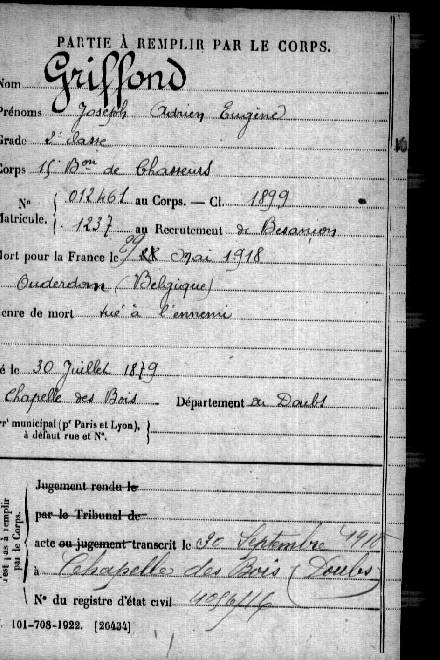 PARTIE À REMPLIR PAR LE CORPS.
Nom Griffond
Prénoms Joseph Adrien Eugène
Grade 2e classe
Corps 15e Bon de Chasseurs
No 012461 au Corps. — Cl. 1899
Matricule. 1237 au Recrutement de Besançon
Mort pour la France le mai 1918
Ouderdom (Belgique)
Genre de mort tué à l'ennemi
Né le 30 Juillet 1879
Chapelle des Bois Département du Doubs
Arrt municipal (pr Paris et Lyon), à défaut rue et No.
Jugement rendu le
par le Tribunal de
acte ou jugement transcrit le 30 Septembre
à Chapelle des Bois (Doubs)
No du registre d'état civil
101-708-1922. [26434]
par le Corps.